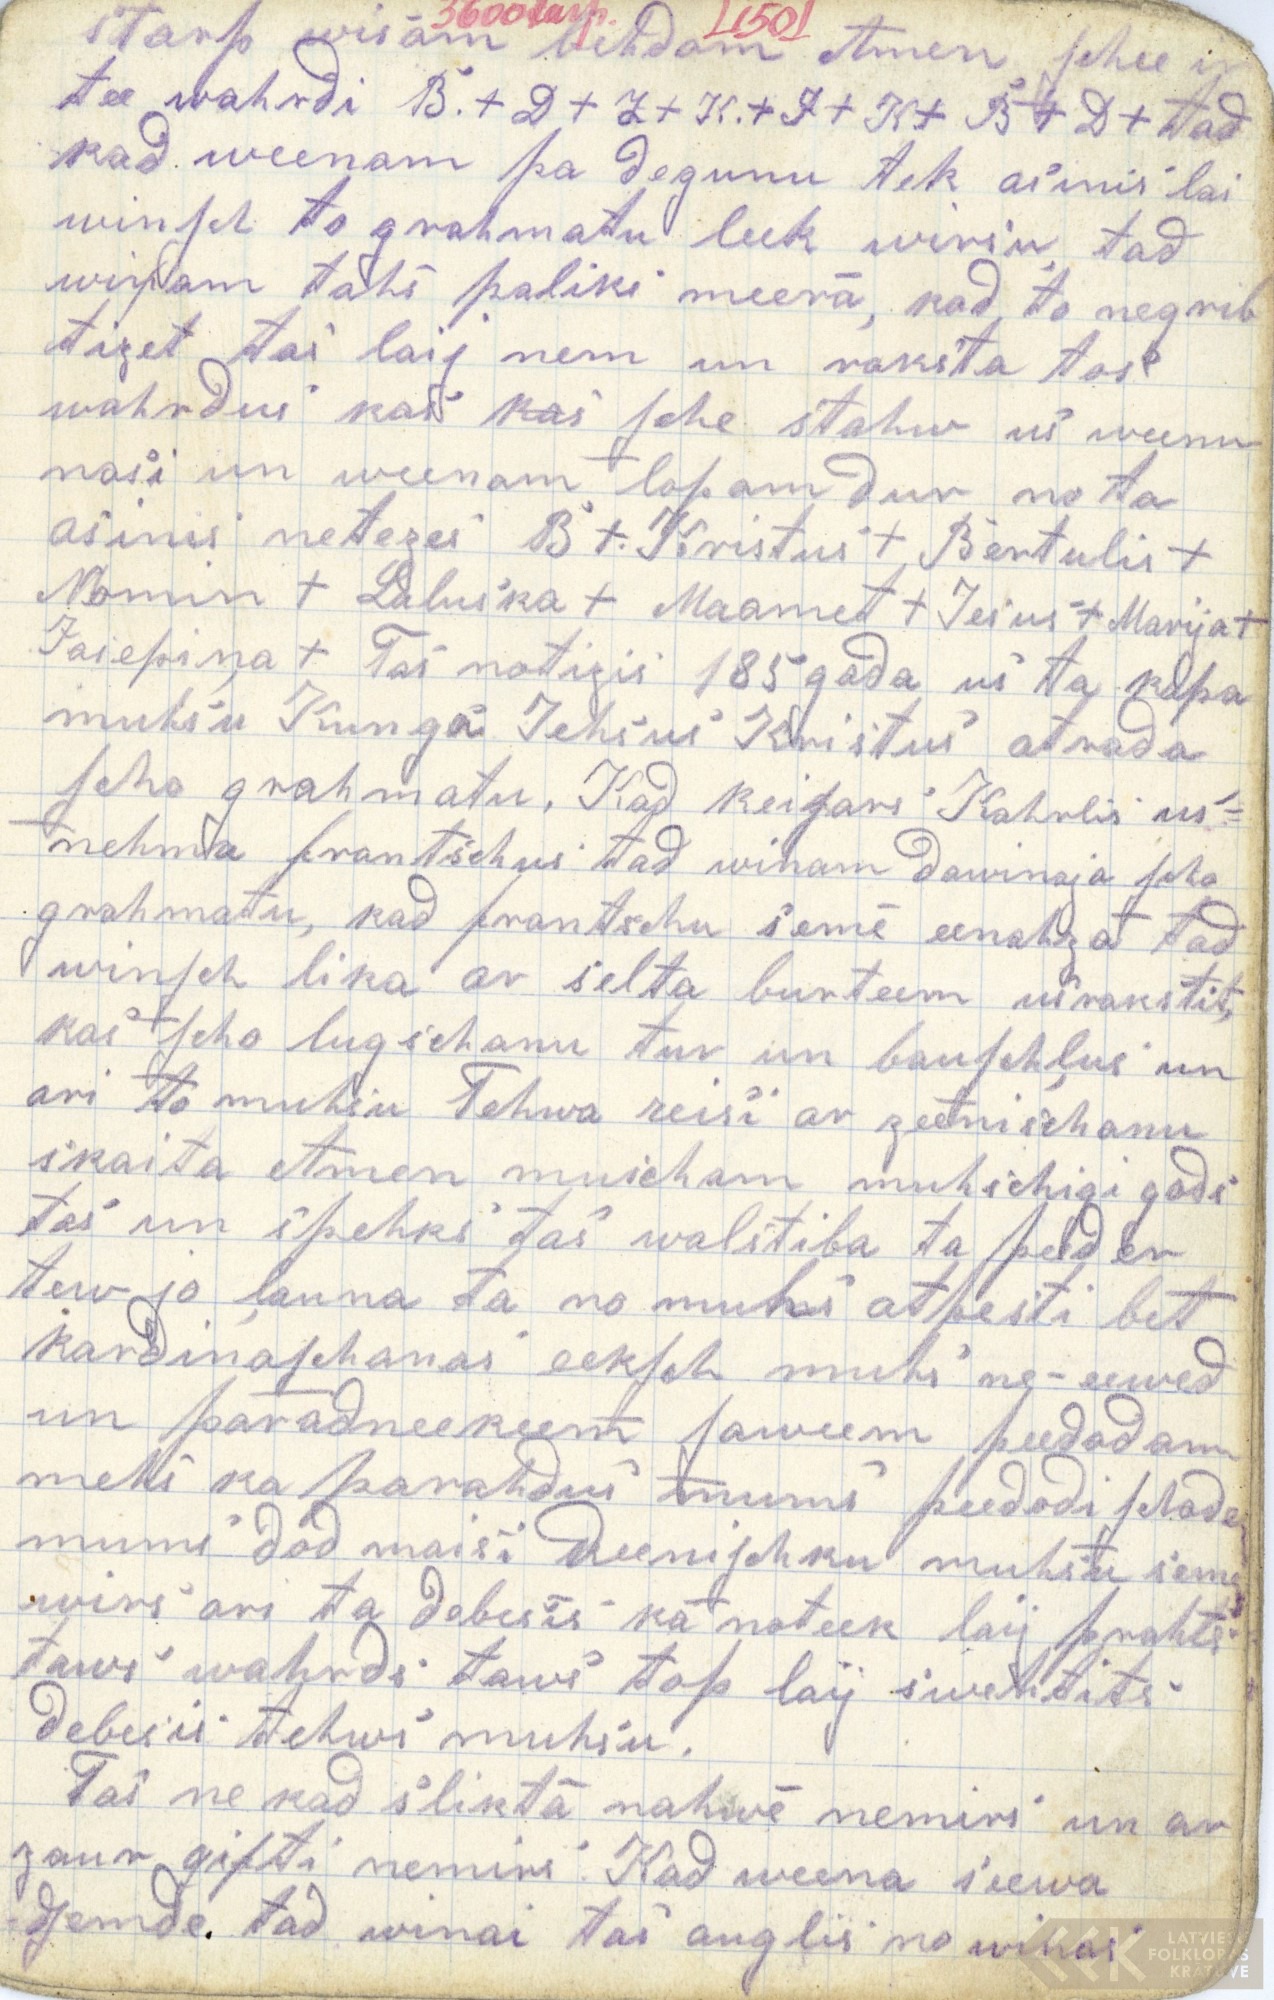 3600 1150
starp wisām behdam Amen schee ir
tee wahrdi B. + D + Z + K. + I + K + B + D + tad
kad weenam pa degunu tek asinis lai
winsch to grahmatu leek wirsu, tad
wiņam tahs paliks meerā, kad to negrib
tizet tas laij nem un raksta tos
wahrdus kas kas sche stahw us weenu
nasi un weenam lopam dur no ta
asinis netezes B +. Kristus + Bertulis +
Nomin + Laluska + Maamet + Jesus + Marija +
Jasepiņa + Tas notizis 185 gada us ta kapa
muhsu Kunga Jehsus Kristus atrada
scho grahmatu. Kad keisars Kahrlis us=
nehma frantschus tad winam dawinaja scho
grahmatu, kad frantschu semē eenahza tad
winsch lika ar selta burteem usrakstit,
kas scho lugschanu tur un bauschļus un
ari to muhsu Tehwa reisi ar zeenischanu
skaita Amen muscham muhschigi gods
tas un spehks tas walstiba ta peeder
tew jo ļauna ta no muhs atpesti bet
kardinaschanas eeksch muhs ne-eewed
un parādneekeem saweem peedodam
mehs ka parahdus mums peedodi schode
mums dod maisi deenischku muhsu seme
wirs ari ta debesīs kā noteek laij prahts
taws wahrds taws top laij swehtits
debesis tehws muhsu.
Tas ne kad sliktā nahwē nemirs un ar
zaur gifti nemirs. Kad weena seewa
dzemde. tad winai tas anglis no winas
LATVIEŠU
FOLKLORAS
KRĀTUVE